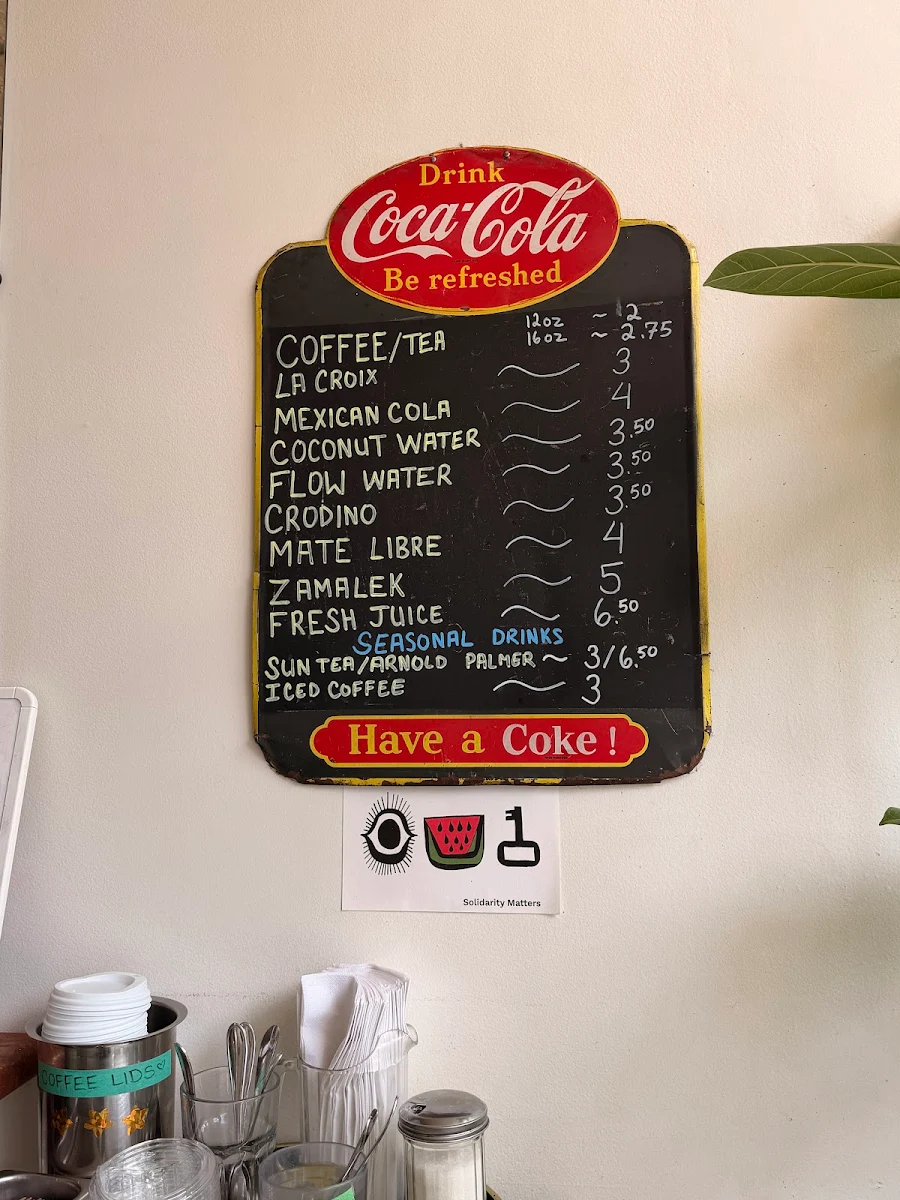 Drink
Coca-Cola
Be refreshed
COFFEE/TEA 12oz ~ 2
16oz ~ 2.75
LA CROIX ~ 3
MEXICAN COLA ~ 4
COCONUT WATER ~ 3.50
FLOW WATER ~ 3.50
CRODINO ~ 3.50
MATE LIBRE ~ 4
ZAMALEK ~ 5
FRESH JUICE ~ 6.50
SEASONAL DRINKS
SUN TEA/ARNOLD PALMER ~ 3/6.50
ICED COFFEE ~ 3
Have a Coke!
Solidarity Matters
COFFEE LIDS♡